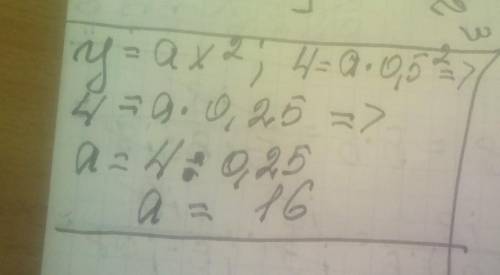 y = ax²; 4 = a · 0,5² =>
4 = a · 0,25 =>
a = 4 : 0,25
a = 16